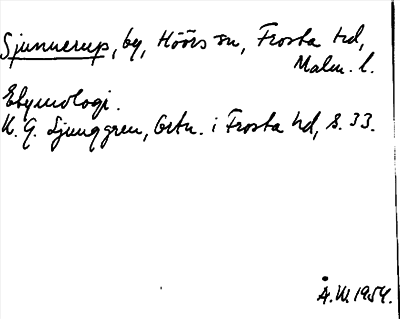 Sjunnerup, by, Höörs sn, Frosta hd,
Malm. l.
Etymologi.
K. G. Ljunggren, Ortn. i Frosta hd, s. 33.
Å. W. 1954.